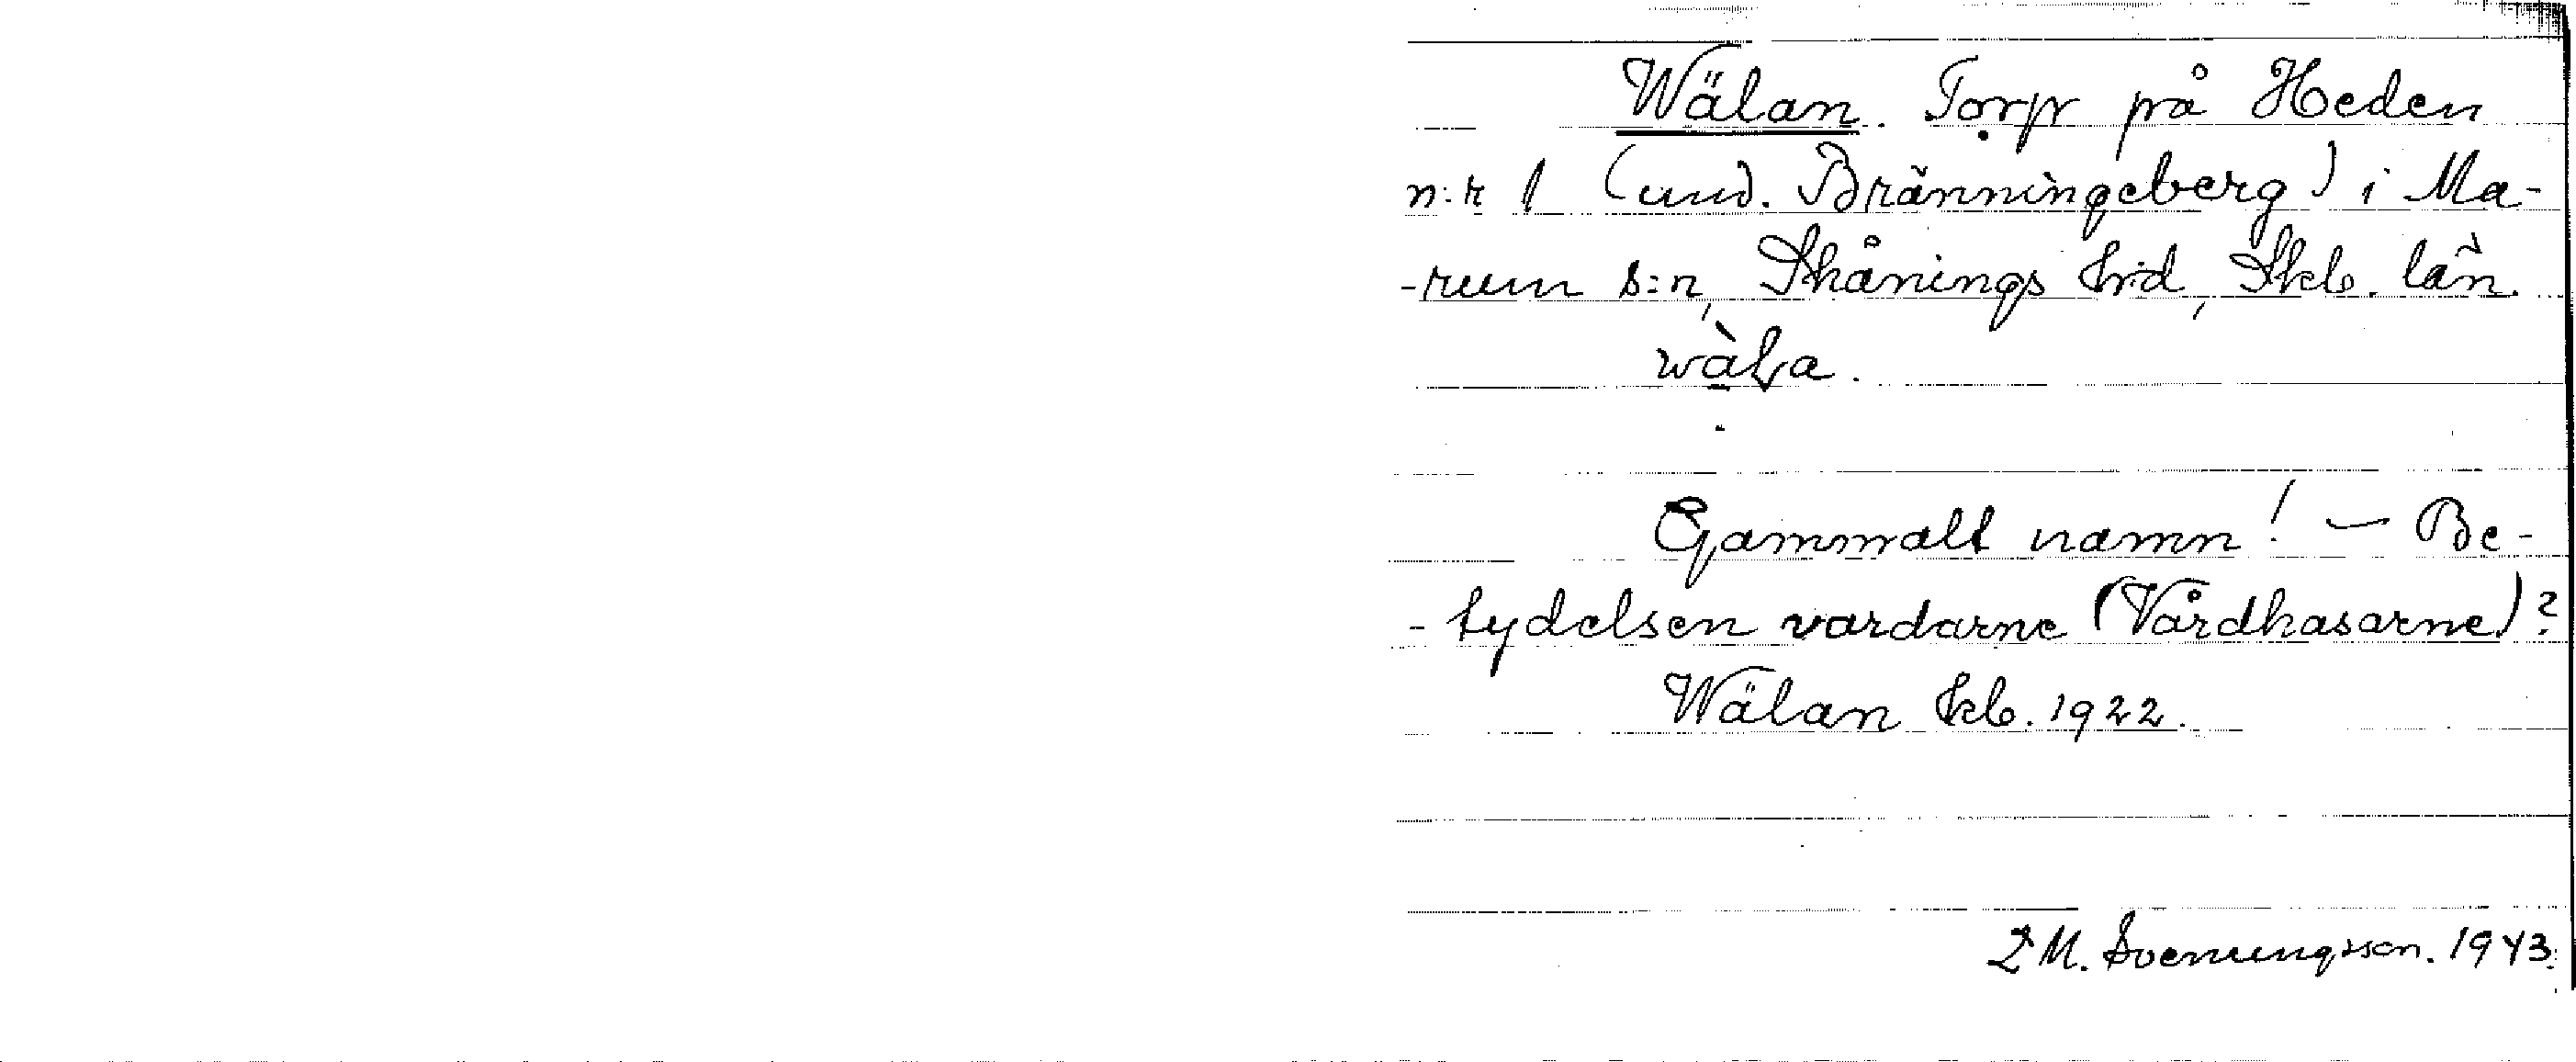 Wälan. Torp på Heden
n:r 1 (und. Bränningeberg) i Ma-
-rum s:n, Skånings hd, Skb. län.
wàḷa.
Gammalt namn! - Be-
- tydelsen vardarne (Vårdkasarne)?
Wälan kb. 1922.
L M. Svenungsson. 1943.